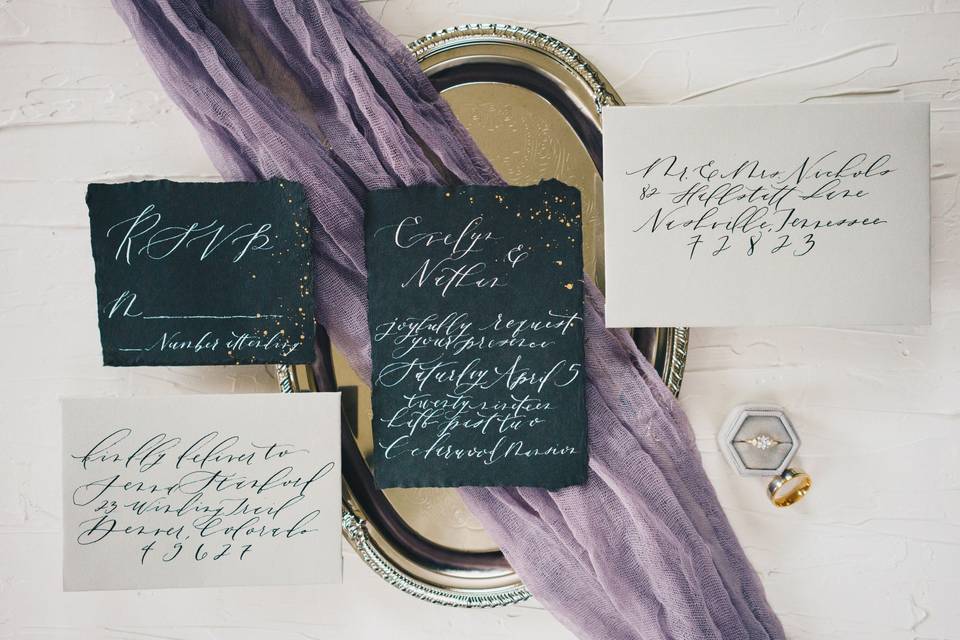 RSVP
M
Number attending
Evelyn
&
Nathan
joyfully request
your presence
Saturday April 5
twenty nineteen
half past two
Cedarwood Mansion
Mr & Mrs Nichols
82 Hallstatt Lane
Nashville, Tennessee
72823
kindly deliver to
Jenna Stanford
23 Winding Trail
Denver, Colorado
49627